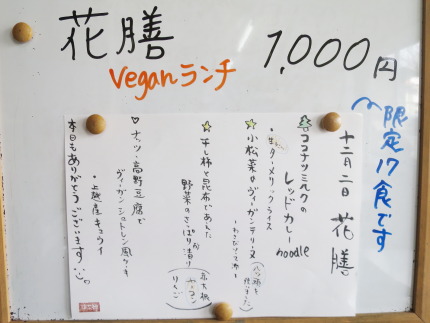 花膳
1,000円
Veganランチ
限定17食です
十二月二日 花膳
ココナツミルクの
レッドカレー
noodle
・生ターメリックライス
☆小松菜のヴィーガンテリーヌ
わさびソース沖し
☆干し柿と昆布であえた
野菜のさっぱり漬け
ヤーコン
りんご
♡ナッツ・高野豆腐で
ヴィーガンシュトレン風ケーキ
・上越産キュウイ
本日もありがとうございます